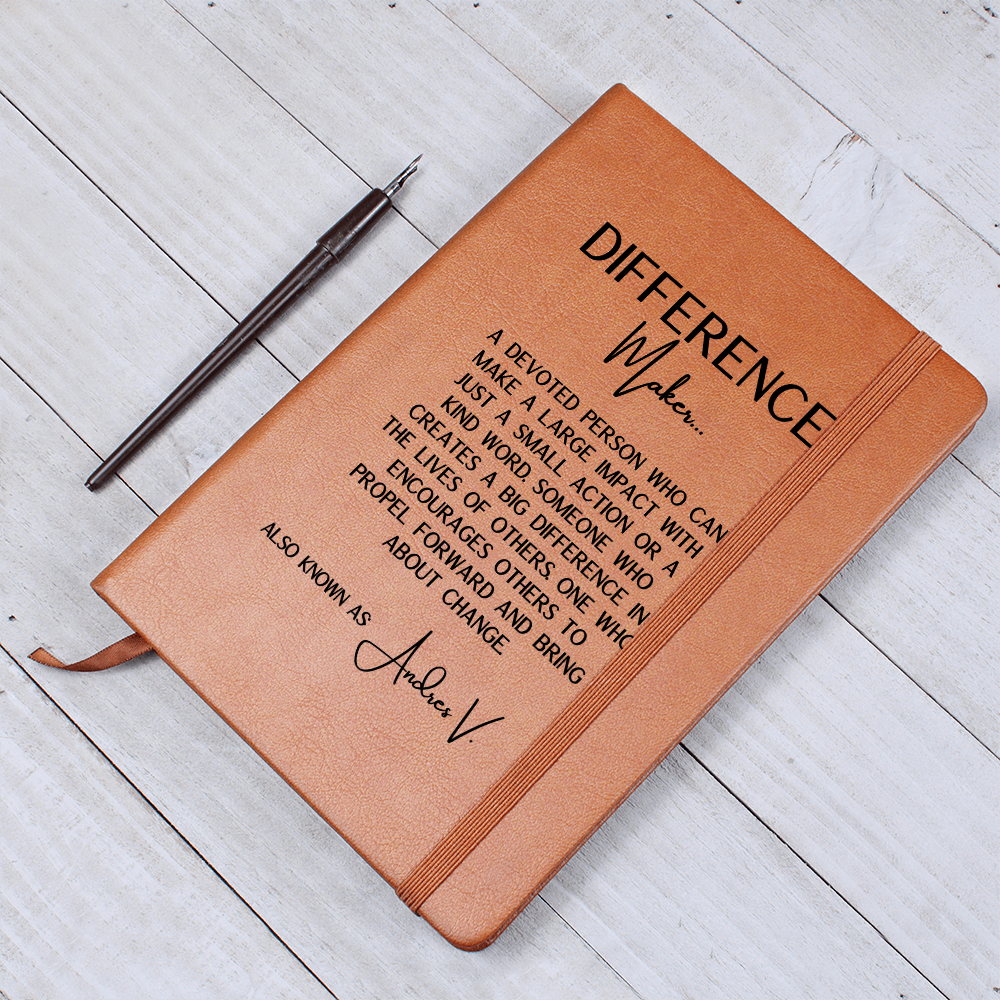 DIFFERENCE
Maker...
A DEVOTED PERSON WHO CAN
MAKE A LARGE IMPACT WITH
JUST A SMALL ACTION OR A
KIND WORD. SOMEONE WHO
CREATES A BIG DIFFERENCE IN
THE LIVES OF OTHERS. ONE WHO
ENCOURAGES OTHERS TO
PROPEL FORWARD AND BRING
ABOUT CHANGE
ALSO KNOWN AS
Andres V.